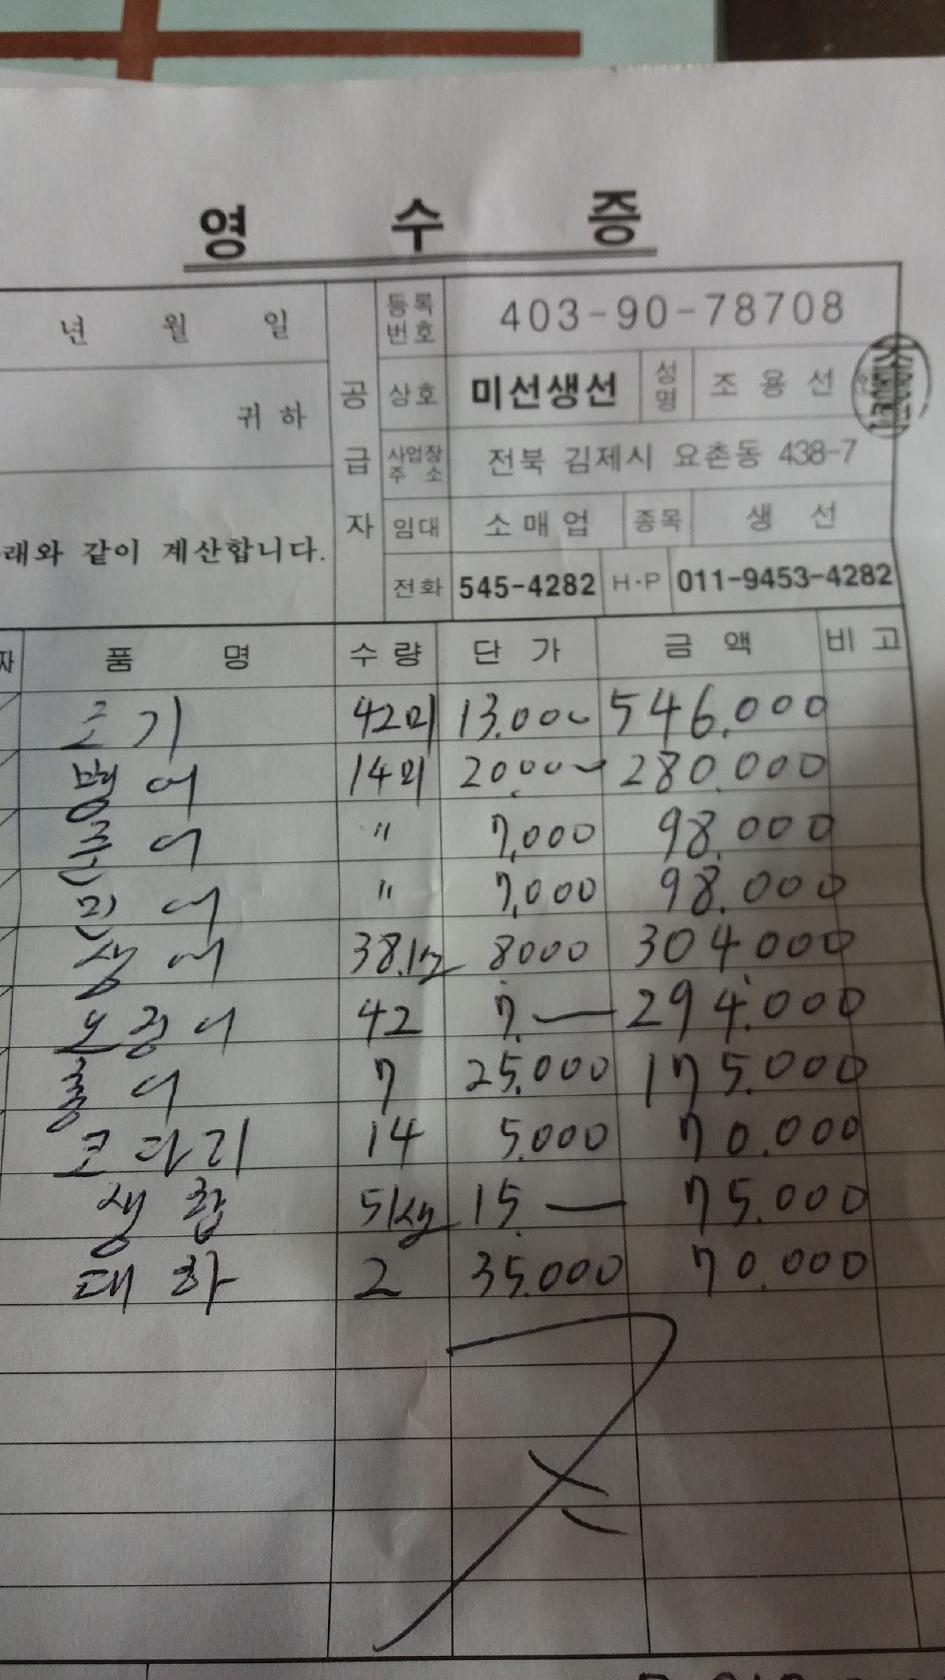 영 수 증
년 월 일
귀 하
래와 같이 계산합니다.
공 급 자
등록번호 403-90-78708
상호 미선생선 성명 조 용 선
사업장주 소 전북 김제시 요촌동 438-7
임대 소 매 업 종목 생 선
전화 545-4282 H·P 011-9453-4282
품 명 수 량 단 가 금 액 비 고
조 기 42미 13.000 546.000
병 어 14미 20.000 280.000
〃 7,000 98.000
민 어 〃 7,000 98.000
상 어 38.1kg 8000 304.000
오징어 42 7.— 294.000
홍 어 7 25.000 175.000
코다리 14 5.000 70.000
생 합 5kg 15.— 75.000
대 하 2 35.000 70.000